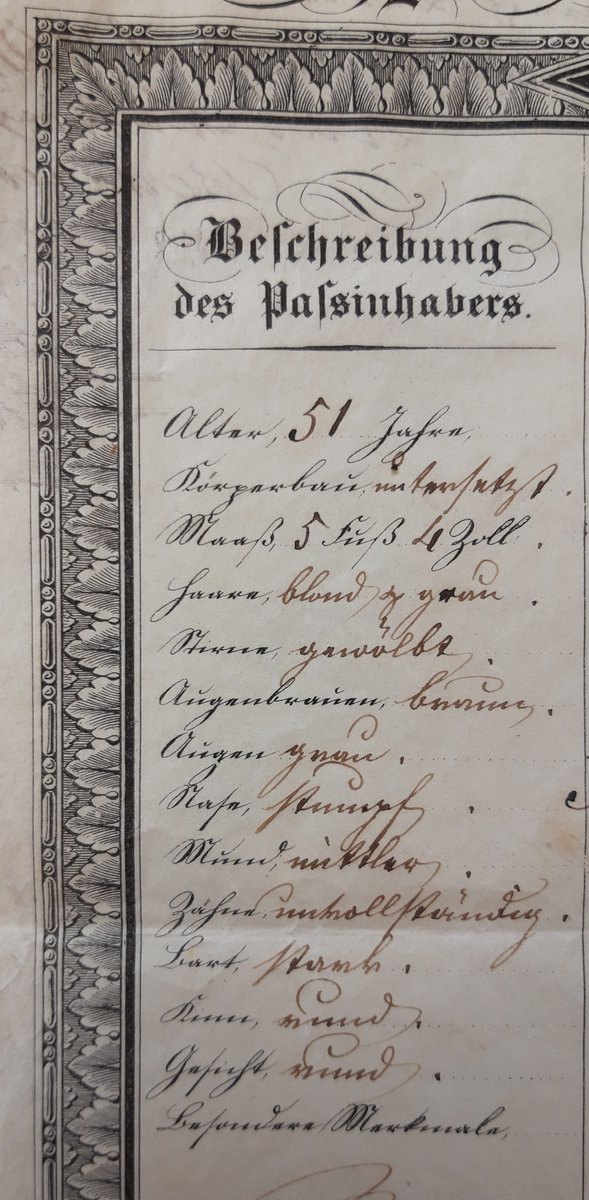 Beschreibung
des Passinhabers.
Alter, 51 Jahre,
Körperbau, untersetzt.
Maaß, 5 Fuß 4 Zoll.
Haare, blond & grau.
Stirne, gewölbt.
Augenbrauen, braun.
Augen grau.
Nase, stumpf.
Mund, mittler.
Zähne, unvollständig.
Bart, stark.
Kinn, rund.
Gesicht, rund.
Besondere Merkmale,